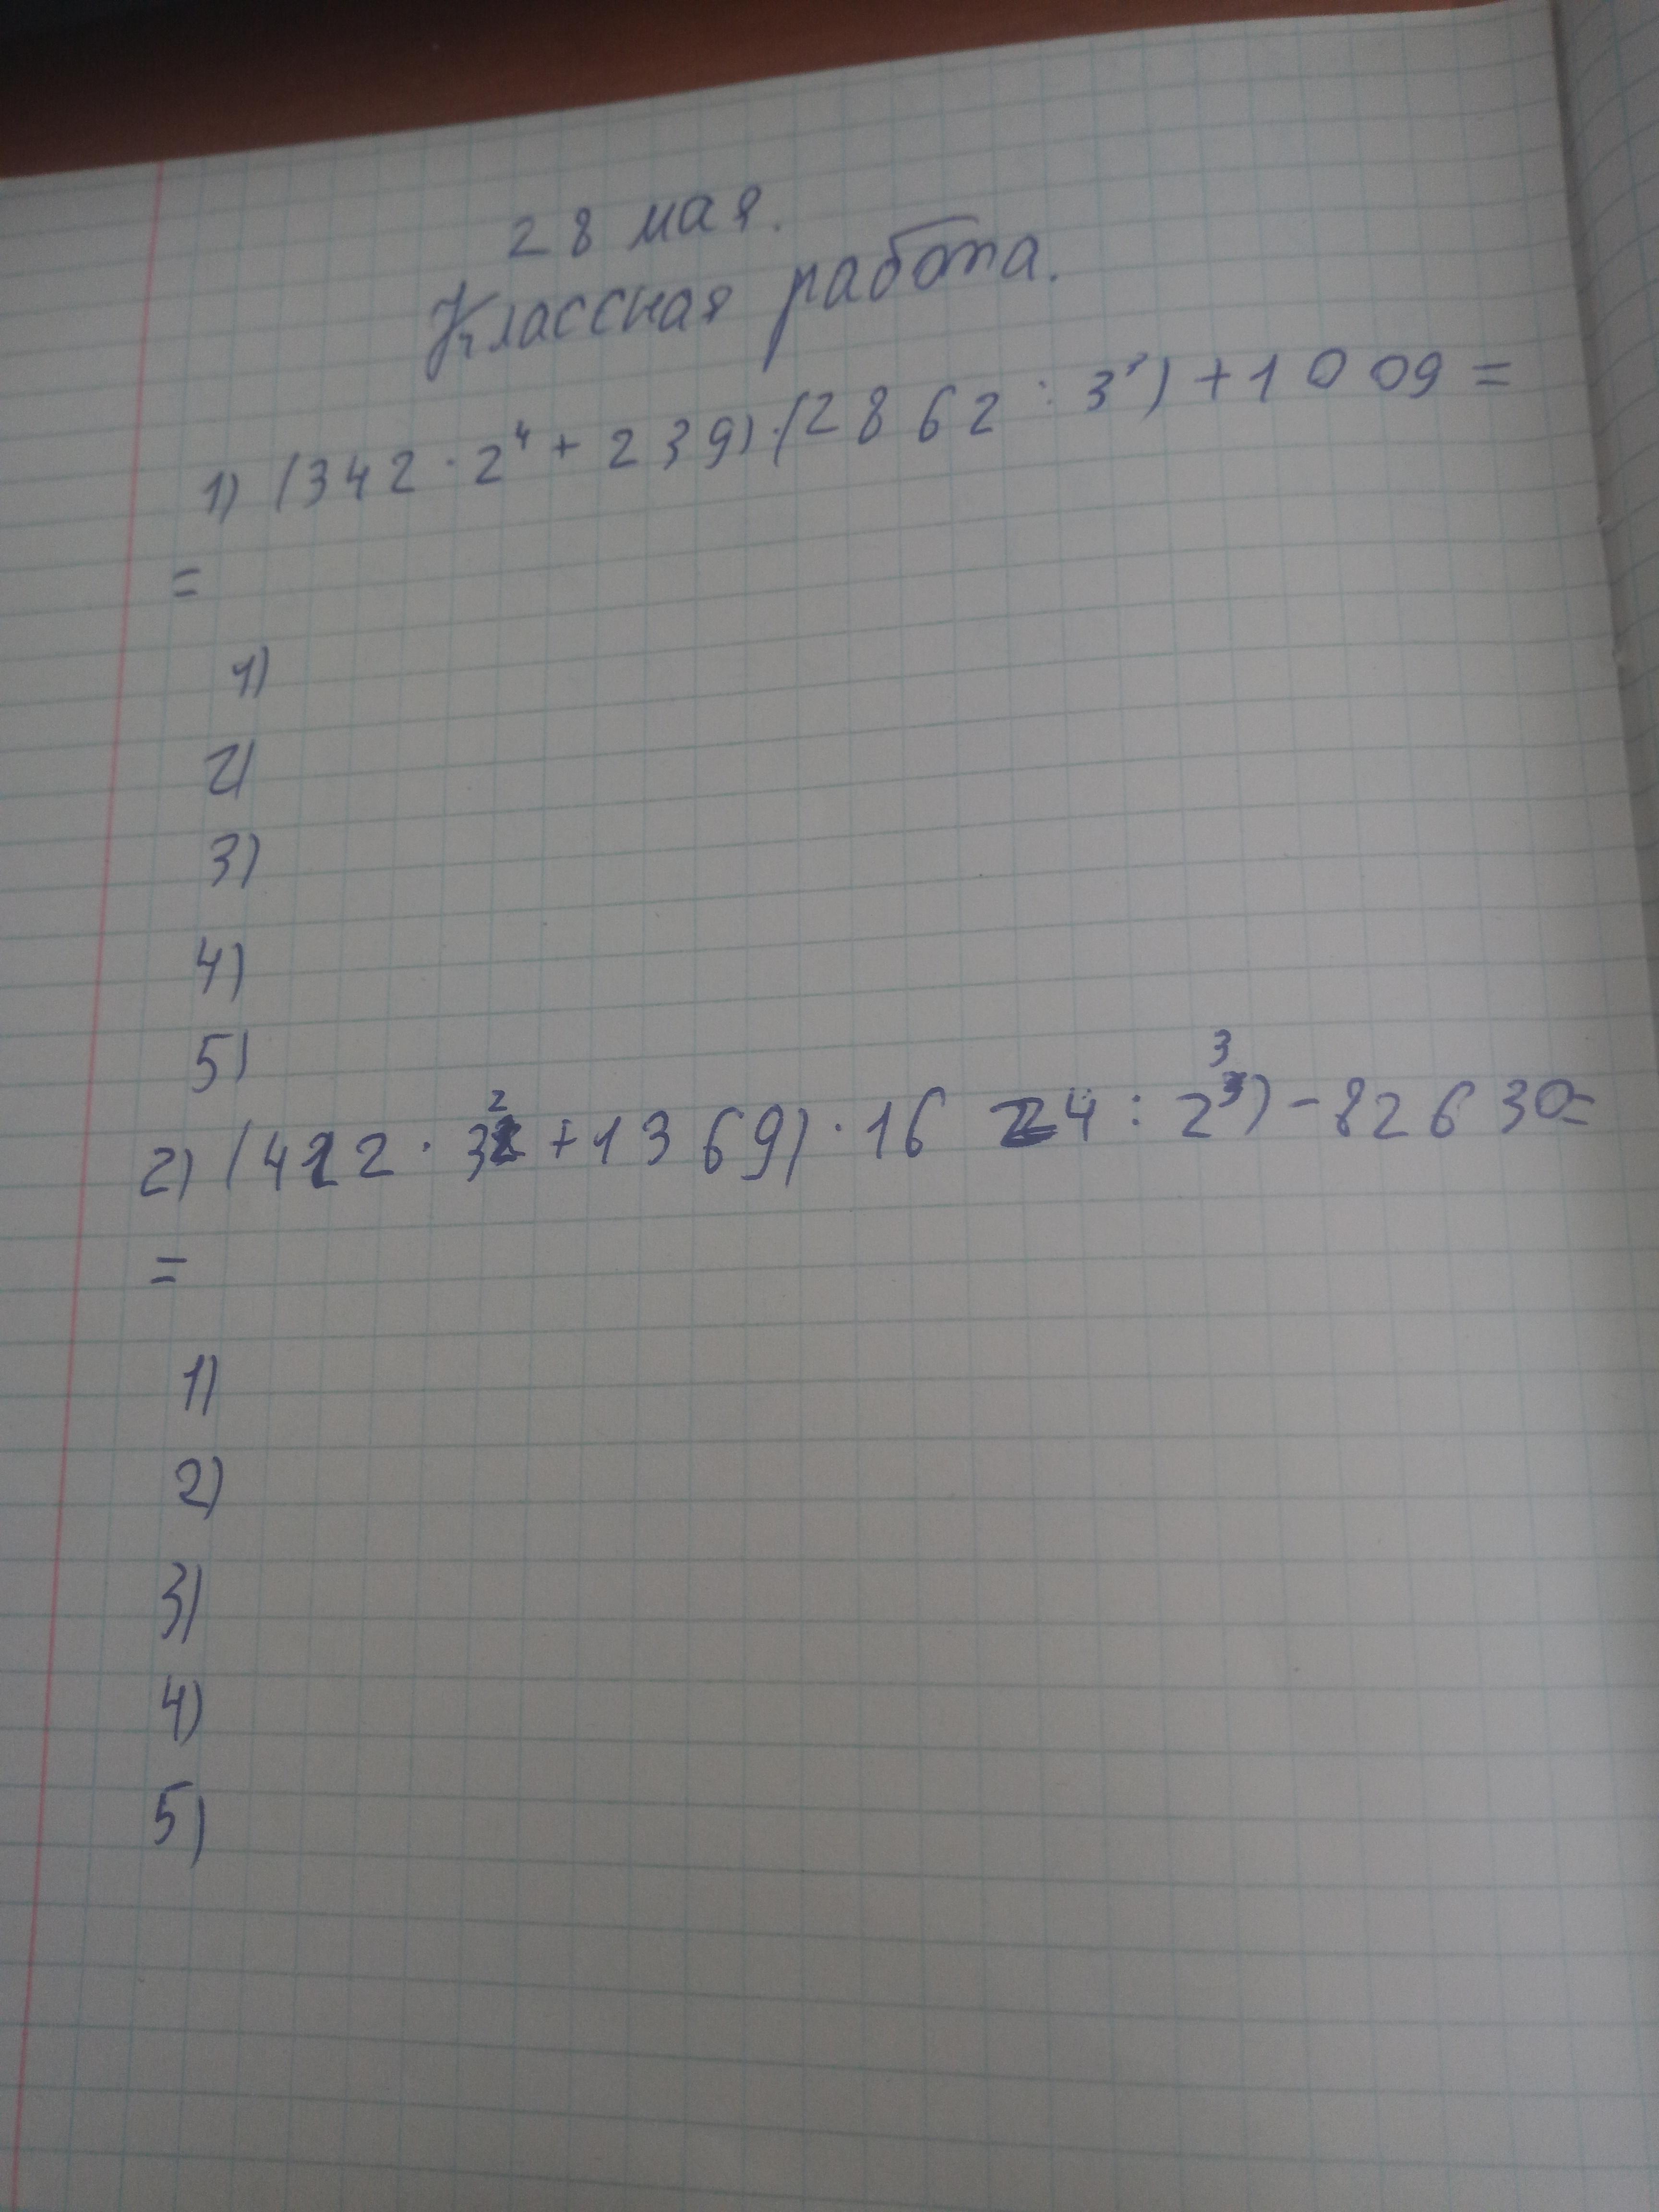 28 мая.
Классная работа.
1) (342 · 2⁴ + 239) · (2862 : 3³) + 1009 =
=
1)
2)
3)
4)
5)
2) (412 · 3² + 1369) · 16 24 : 2³) - 82630 =
=
1)
2)
3)
4)
5)